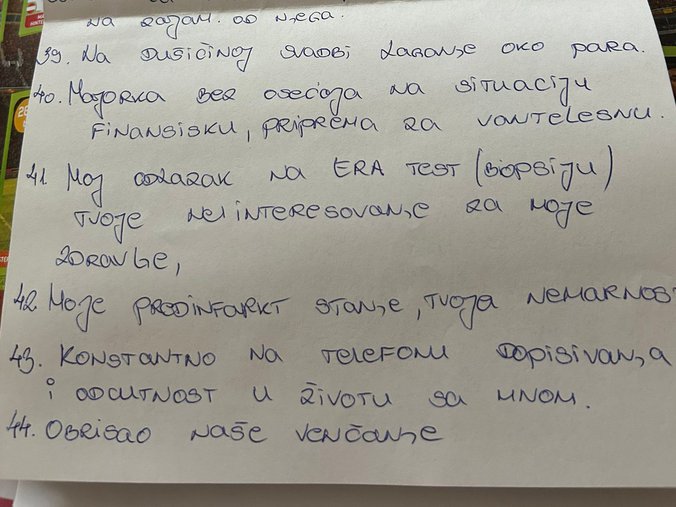 NA ZAJAM. OD NJEGA.
39. NA DUŠIČINOJ SVADBI LAGANJE OKO PARA.
40. MAJORKA BEZ OSEĆAJA NA SITUACIJU
FINANSISKU, PRIPREMA ZA VANTELESNU.
41. MOJ ODLAZAK NA ERA TEST (BIOPSIJU)
TVOJE NEINTERESOVANJE ZA MOJE
ZDRAVLJE,
42. MOJE PREDINFARKT STANJE, TVOJA NEMARNOST
43. KONSTANTNO NA TELEFONU DOPISIVANJA
I ODCUTNOST U ŽIVOTU SA MNOM.
44. OBRISAO NAŠE VENČANJE